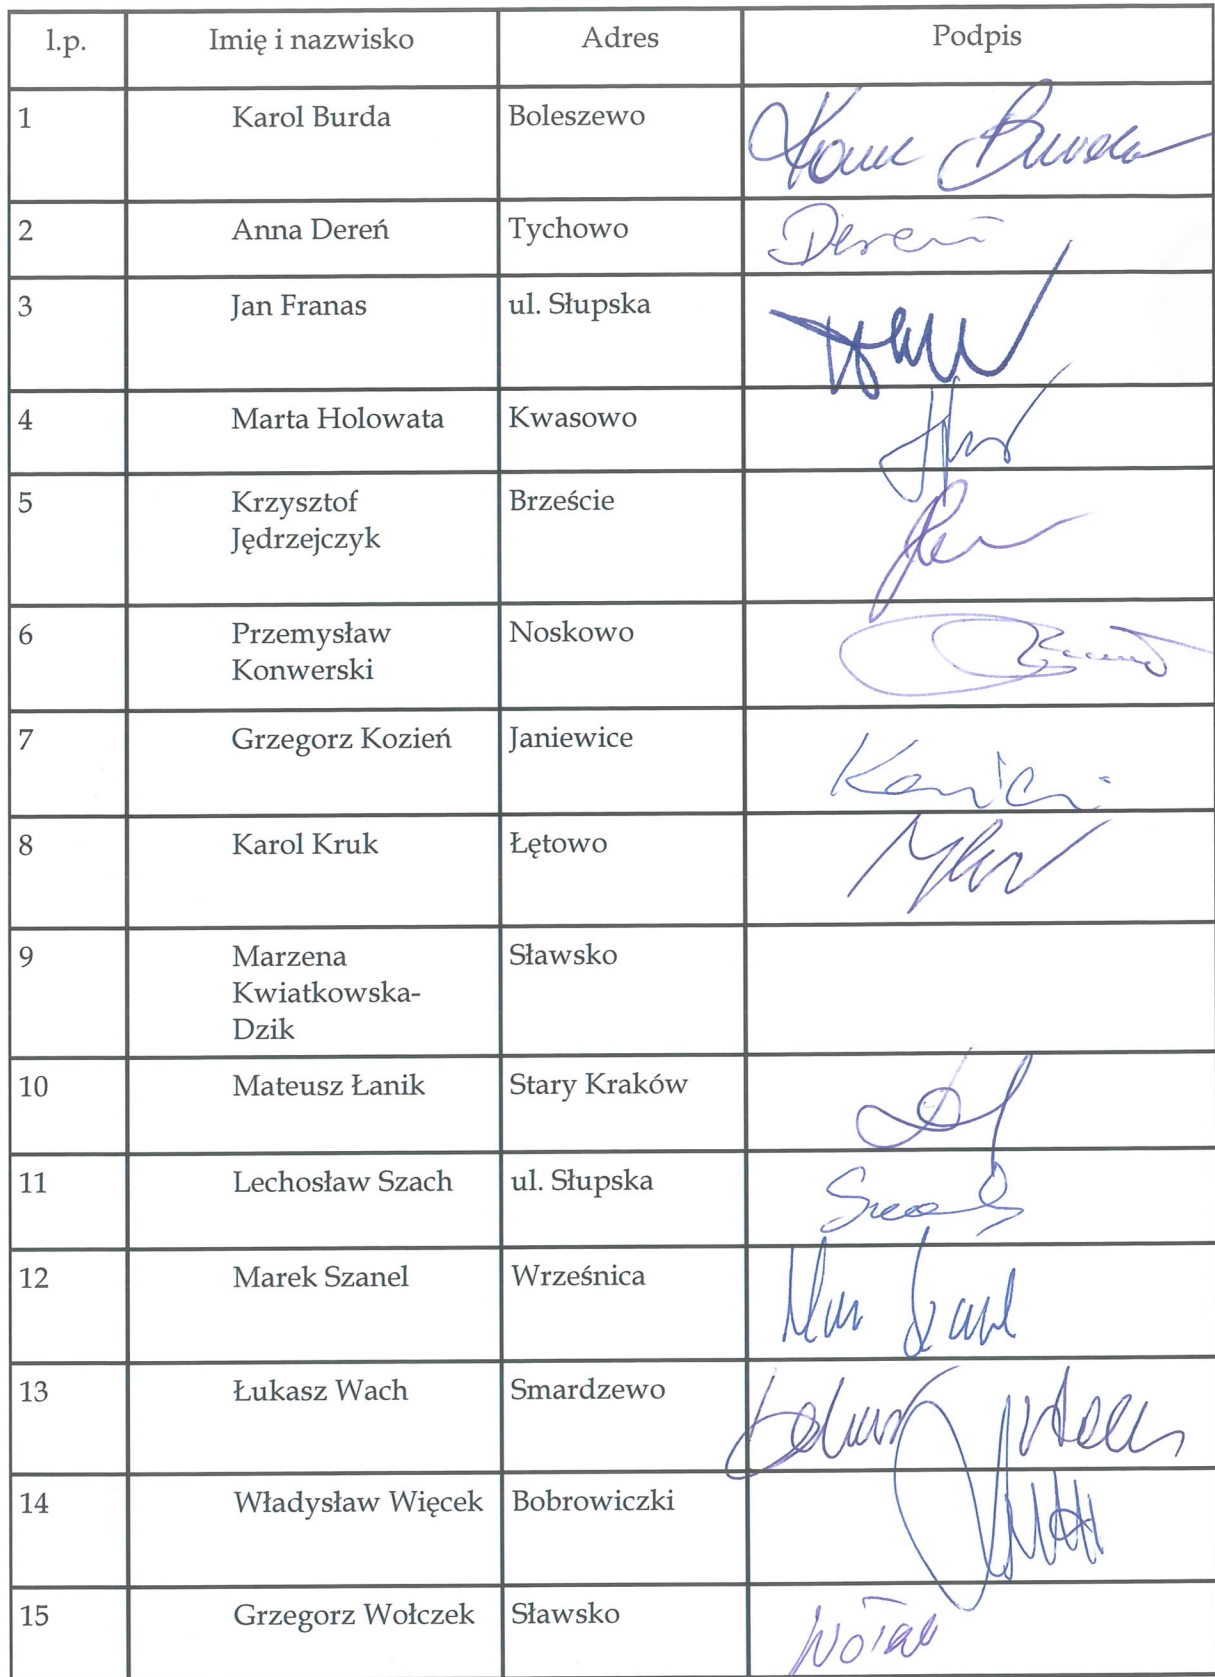 l.p. Imię i nazwisko Adres Podpis
1 Karol Burda Boleszewo Karol Burda
2 Anna Dereń Tychowo Dereń
3 Jan Franas ul. Słupska
4 Marta Holowata Kwasowo
5 Krzysztof Brzeście
Jędrzejczyk
6 Przemysław Noskowo
Konwerski
7 Grzegorz Kozień Janiewice
8 Karol Kruk Łętowo
9 Marzena Sławsko
Kwiatkowska-
Dzik
10 Mateusz Łanik Stary Kraków
11 Lechosław Szach ul. Słupska
12 Marek Szanel Wrześnica
13 Łukasz Wach Smardzewo
14 Władysław Więcek Bobrowiczki
15 Grzegorz Wołczek Sławsko